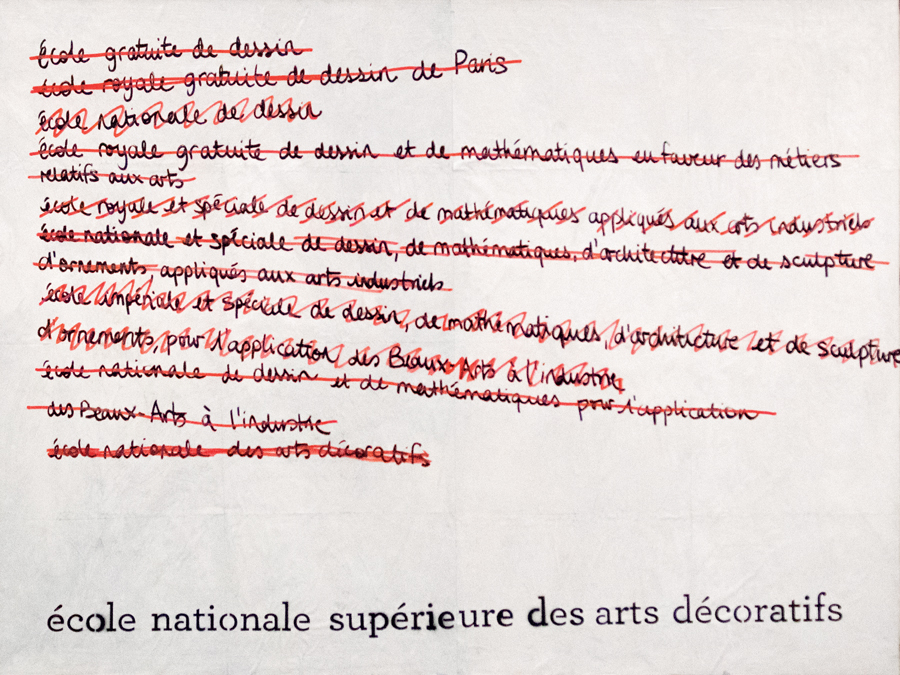 école gratuite de dessin
école royale gratuite de dessin de Paris
école nationale de dessin
école royale gratuite de dessin et de mathématiques en faveur des métiers
relatifs aux arts
école royale et spéciale de dessin et de mathématiques appliqués aux arts industriels
école nationale et spéciale de dessin, de mathématiques, d'architecture et de sculpture
d'ornements appliqués aux arts industriels
école impériale et spéciale de dessin, de mathématiques, d'architecture et de sculpture
d'ornements, pour l'application des Beaux-Arts à l'industrie
école nationale de dessin et de mathématiques pour l'application
des Beaux-Arts à l'industrie
école nationale des arts décoratifs
école nationale supérieure des arts décoratifs